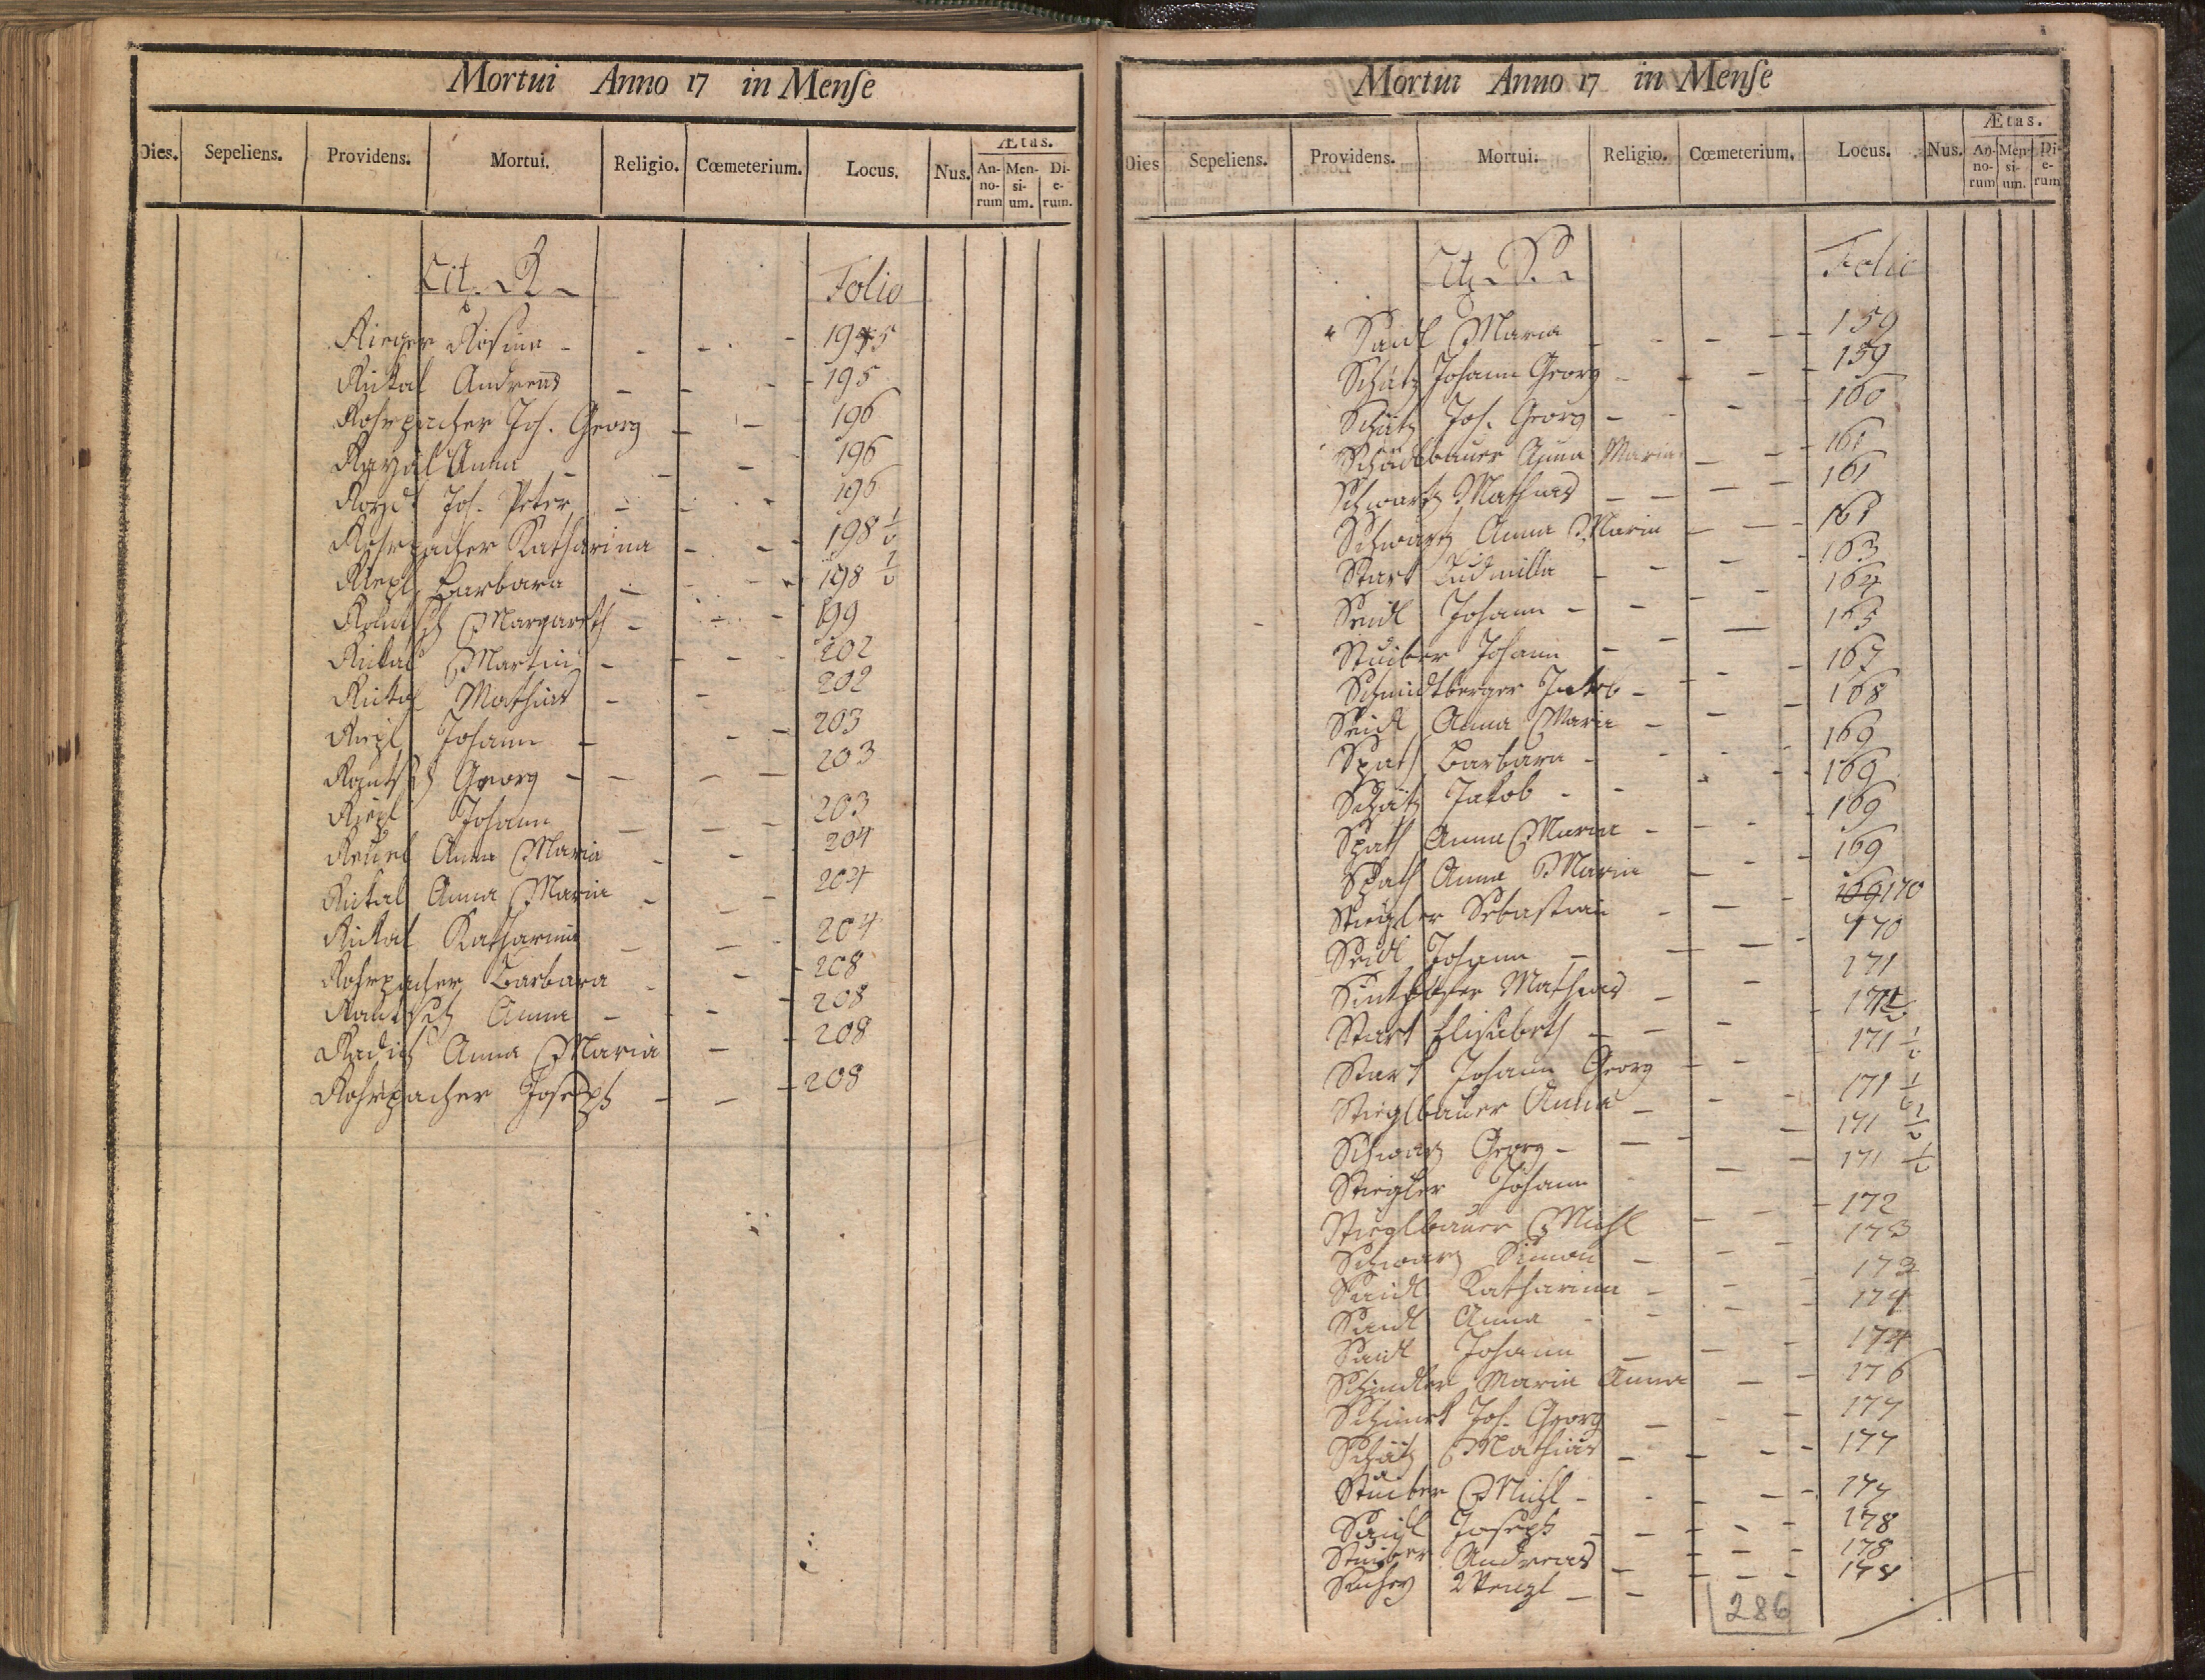 Mortui Anno 17 in Mense
Dies. Sepeliens. Providens. Mortui. Religio. Cœmeterium. Locus. Nus. Ætas.
An-no-rum Men-si-um. Di-e-rum.
Lit. R Folio
Rieger Rosina - - - - 195
Rickal Andreas - - - 195
Rohrpacher Joh. Georg - - 196
Anna - - - 196
Joh. Peter - - - 196
Rohrpacher Katharina - - 198 1/2
Riepl Barbara - - - 198 1/2
Margareth - - - 199
Rickal Martin - - - 202
Rickal Mathias - - 202
Riepl Johann - - - 203
Georg - - - - 203
Riepl Johann - - - 203
Anna Maria - - 204
Rickal Anna Maria - - - 204
Rickal Katharina - - 204
Rohrpacher Barbara - - - 208
Anna - - - 208
Anna Maria - - 208
Rohrpacher Joseph - - - 208
Mortui Anno 17 in Mense
Dies Sepeliens. Providens. Mortui. Religio. Cœmeterium. Locus. Nus. Ætas.
An-no-rum Men-si-um. Di-e-rum
Lit. S. Folio
Saidl Maria - - - - 159
Schätz Johann Georg - - - 159
Schätz Joh. Georg - - - 160
Anna Maria - - 161
Schwartz Mathias - - - - 161
Schwartz Anna Maria - - - 161
Start Ludmilla - - - - 163
Seidl Johann - - - - 164
Stuiber Johann - - - 165
Schmidtberger Jakob - - - 167
Seidl Anna Maria - - - 168
Spath Barbara - - - 169
Schätz Jakob - - - - 169
Spath Anna Maria - - - 169
Spath Anna Maria - - - 169
Stiegler Sebastian - - - 170
Seidl Johann - - - - 170
Mathias - - 171
Start Elisabeth - - - - 171
Start Johann Georg - - 171 1/2
Stieglbauer Anna - - - 171 1/2
Schwarz Georg - - - - 171 1/2
Stiegler Johann - - 171 1/2
Stieglbauer Michl - - - 172
Schwarz Simon - - 173
Saidl Katharina - - - 173
Saidl Anna - - - - 174
Saidl Johann - - - 174
Schindler Maria Anna - - 176
Joh. Georg - - - 177
Schätz Mathias - - - - 177
Stuiber Michl - - - - - 177
Saidl Joseph - - - - - 178
Stuiber Andreas - - - - 178
Wenzl - - - - - 178
286